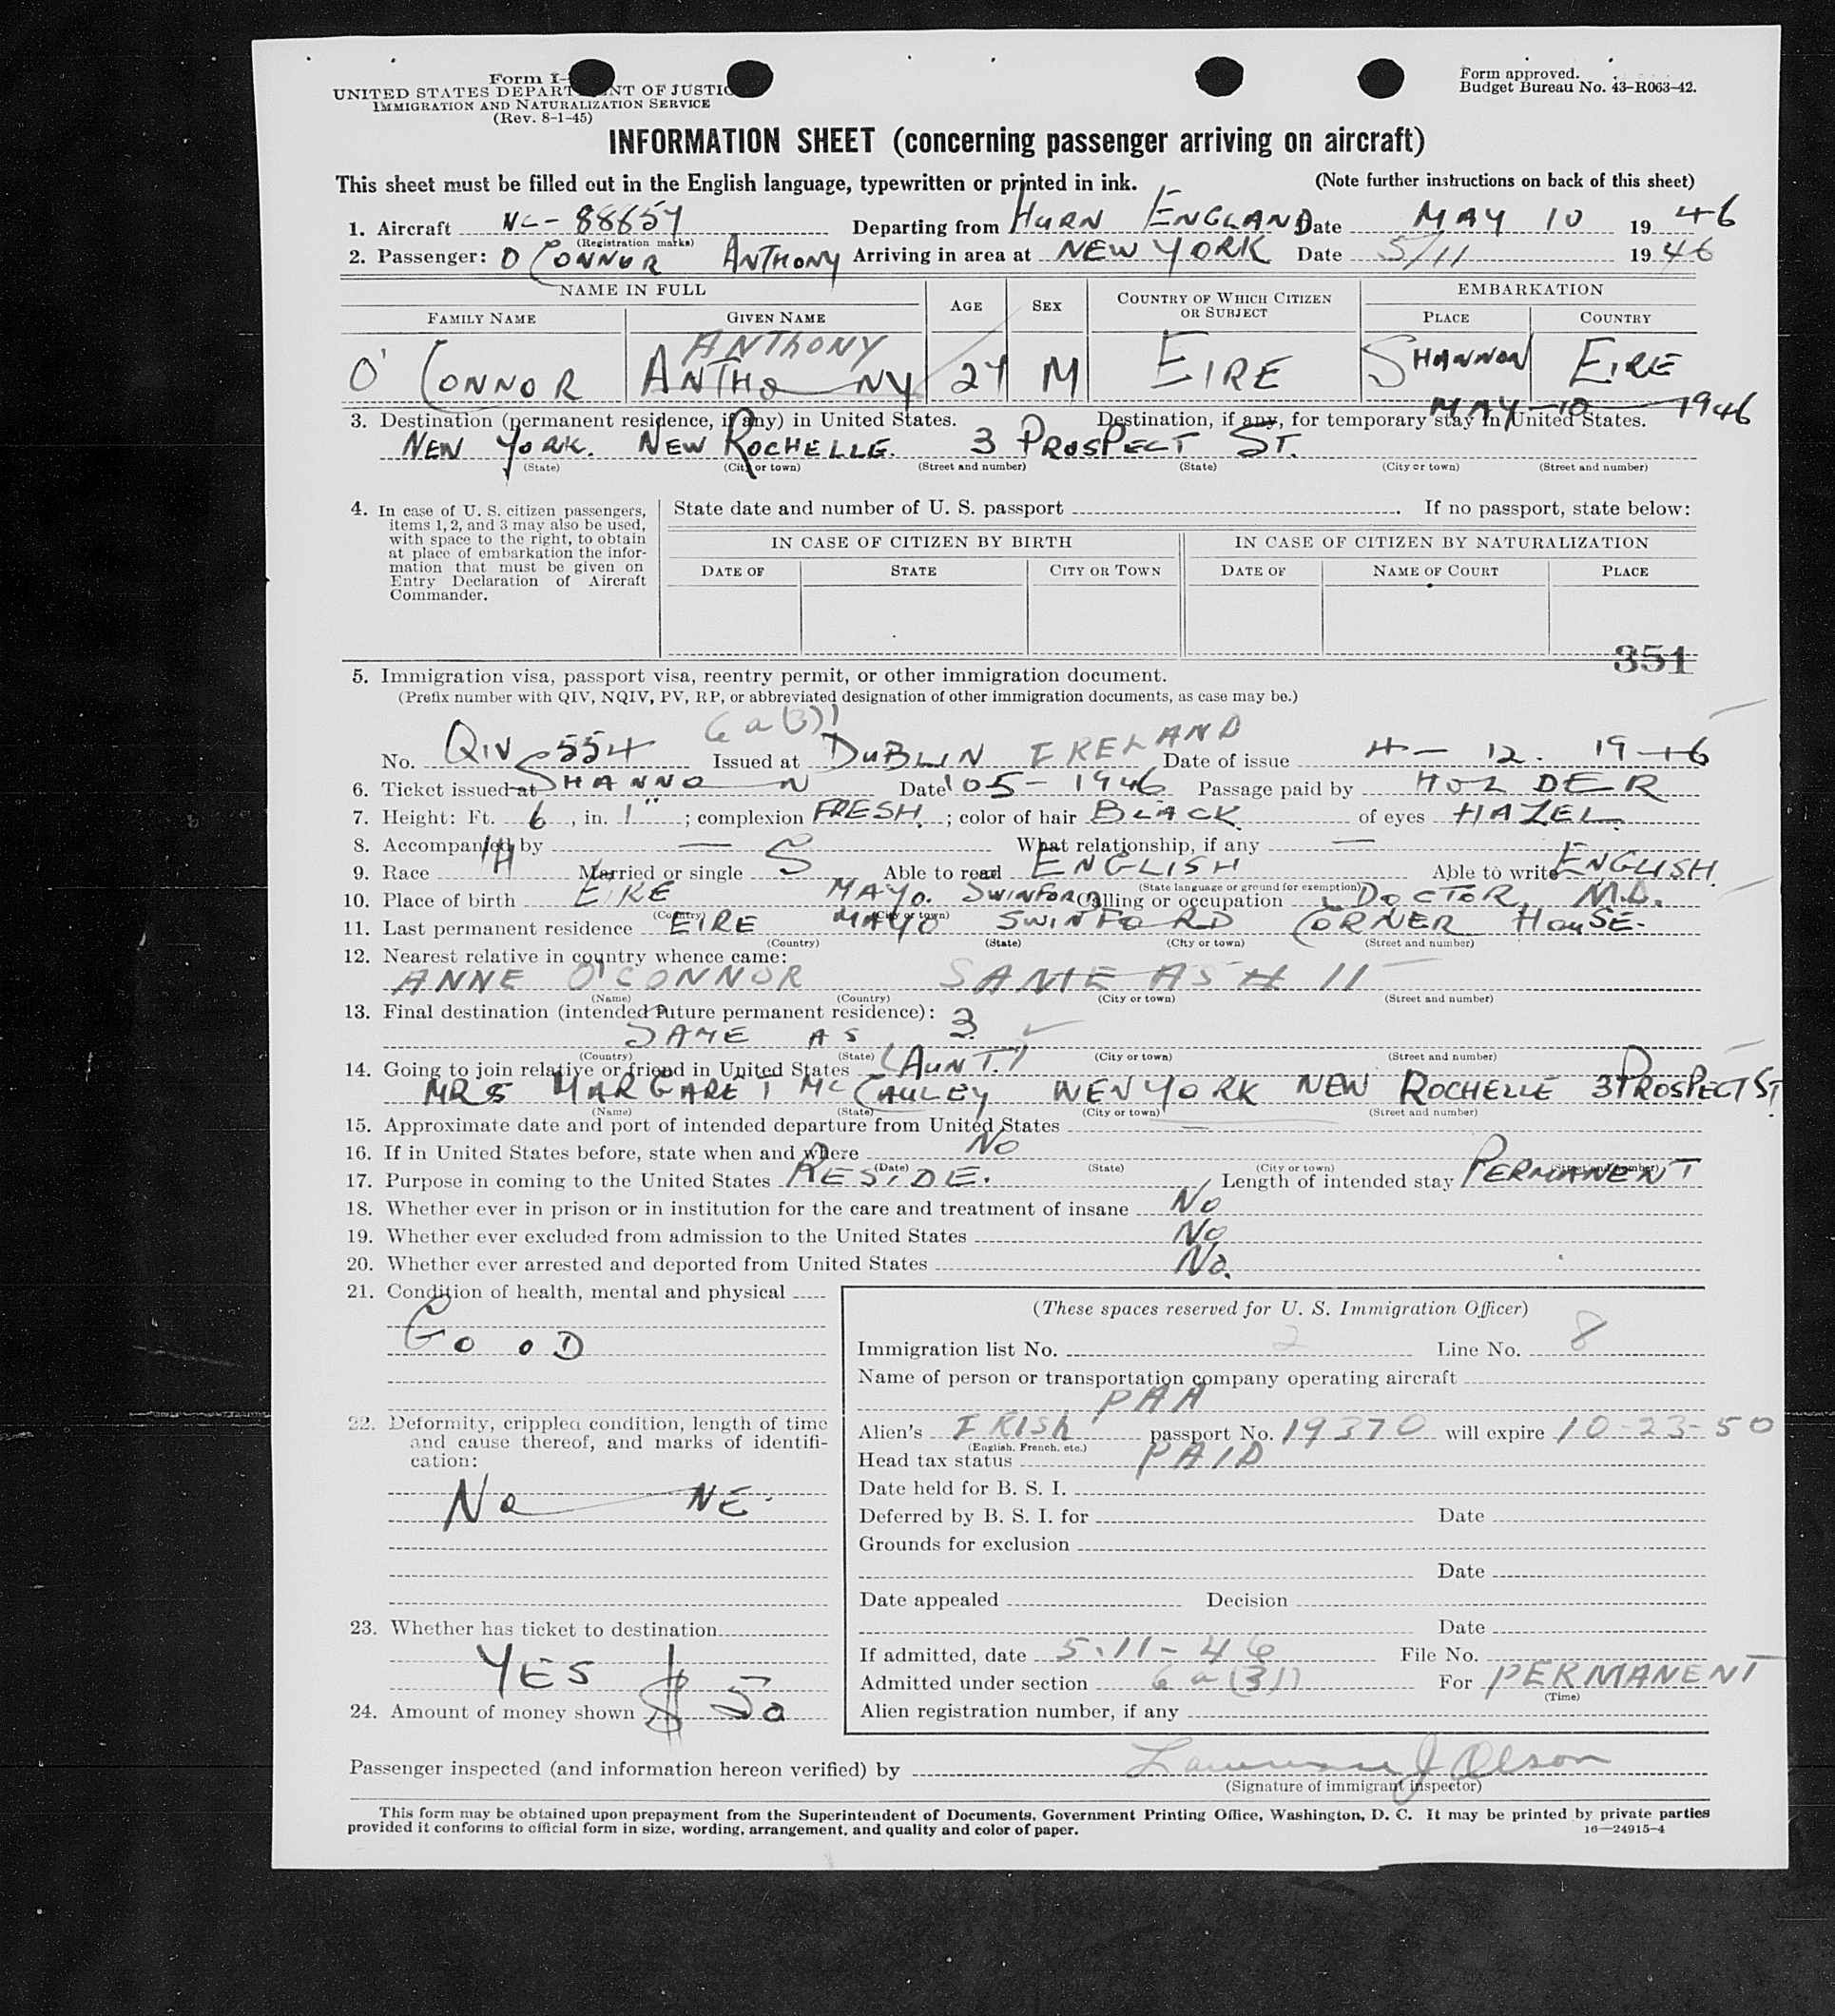 Form I-
UNITED STATES DEPARTMENT OF JUSTIC
IMMIGRATION AND NATURALIZATION SERVICE
(Rev. 8-1-45)
Form approved.
Budget Bureau No. 43-R063-42.
INFORMATION SHEET (concerning passenger arriving on aircraft)
This sheet must be filled out in the English language, typewritten or printed in ink. (Note further instructions on back of this sheet)
1. Aircraft NC-88857 Departing from HURN ENGLAND Date MAY 10 1946
(Registration marks)
2. Passenger: O CONNOR ANTHONY Arriving in area at NEW YORK Date 5/11 1946
NAME IN FULL AGE SEX COUNTRY OF WHICH CITIZEN OR SUBJECT EMBARKATION
FAMILY NAME GIVEN NAME PLACE COUNTRY
ANTHONY
O' CONNOR ANTHO NY 27 M EIRE SHANNON EIRE
MAY-10 1946
3. Destination (permanent residence, if any) in United States. Destination, if any, for temporary stay in United States.
NEW YORK. NEW ROCHELLE. 3 PROSPECT ST.
(State) (City or town) (Street and number) (State) (City or town) (Street and number)
4. In case of U. S. citizen passengers, items 1, 2, and 3 may also be used, with space to the right, to obtain at place of embarkation the information that must be given on Entry Declaration of Aircraft Commander.
State date and number of U. S. passport . If no passport, state below:
IN CASE OF CITIZEN BY BIRTH IN CASE OF CITIZEN BY NATURALIZATION
DATE OF STATE CITY OR TOWN DATE OF NAME OF COURT PLACE
351
5. Immigration visa, passport visa, reentry permit, or other immigration document.
(Prefix number with QIV, NQIV, PV, RP, or abbreviated designation of other immigration documents, as case may be.)
6a(3)1
No. QIV 554 Issued at DUBLIN IRELAND Date of issue 4-12. 1946
6. Ticket issued at SHANNO N Date 105-1946 Passage paid by HOLDER
7. Height: Ft. 6, in. 1"; complexion FRESH.; color of hair BLACK. of eyes HAZEL.
8. Accompanied by — What relationship, if any —
9. Race IH Married or single S Able to read ENGLISH Able to write ENGLISH.
(State language or ground for exemption)
10. Place of birth EIRE MAYO. SWINFORD Calling or occupation DOCTOR, M.D.
(Country) (City or town)
11. Last permanent residence EIRE MAYO SWINFORD CORNER HOUSE.
(Country) (State) (City or town) (Street and number)
12. Nearest relative in country whence came:
ANNE O'CONNOR SAME AS # 11
(Name) (Country) (City or town) (Street and number)
13. Final destination (intended future permanent residence):
SAME AS 3
(Country) (State) (City or town) (Street and number)
14. Going to join relative or friend in United States (AUNT.)
MRS MARGARET MC CAULEY NEW YORK NEW ROCHELLE 3 PROSPECT ST.
(Name) (State) (City or town) (Street and number)
15. Approximate date and port of intended departure from United States —
16. If in United States before, state when and where NO
(Date) (State) (City or town) (Street and number)
17. Purpose in coming to the United States RESIDE. Length of intended stay PERMANENT
18. Whether ever in prison or in institution for the care and treatment of insane NO
19. Whether ever excluded from admission to the United States NO
20. Whether ever arrested and deported from United States NO.
21. Condition of health, mental and physical
GOOD
22. Deformity, crippled condition, length of time and cause thereof, and marks of identification:
NO NE.
23. Whether has ticket to destination
YES
24. Amount of money shown $ 50
(These spaces reserved for U. S. Immigration Officer)
Immigration list No. 2 Line No. 8
Name of person or transportation company operating aircraft
PAA
Alien's IRISH passport No. 19370 will expire 10-23-50
(English, French, etc.)
Head tax status PAID
Date held for B. S. I.
Deferred by B. S. I. for Date
Grounds for exclusion
Date
Date appealed Decision
Date
If admitted, date 5-11-46 File No.
Admitted under section 6a(3)1 For PERMANENT
(Time)
Alien registration number, if any
Passenger inspected (and information hereon verified) by Lawrence J Olson
(Signature of immigrant inspector)
This form may be obtained upon prepayment from the Superintendent of Documents, Government Printing Office, Washington, D. C. It may be printed by private parties
provided it conforms to official form in size, wording, arrangement, and quality and color of paper. 16—24915-4